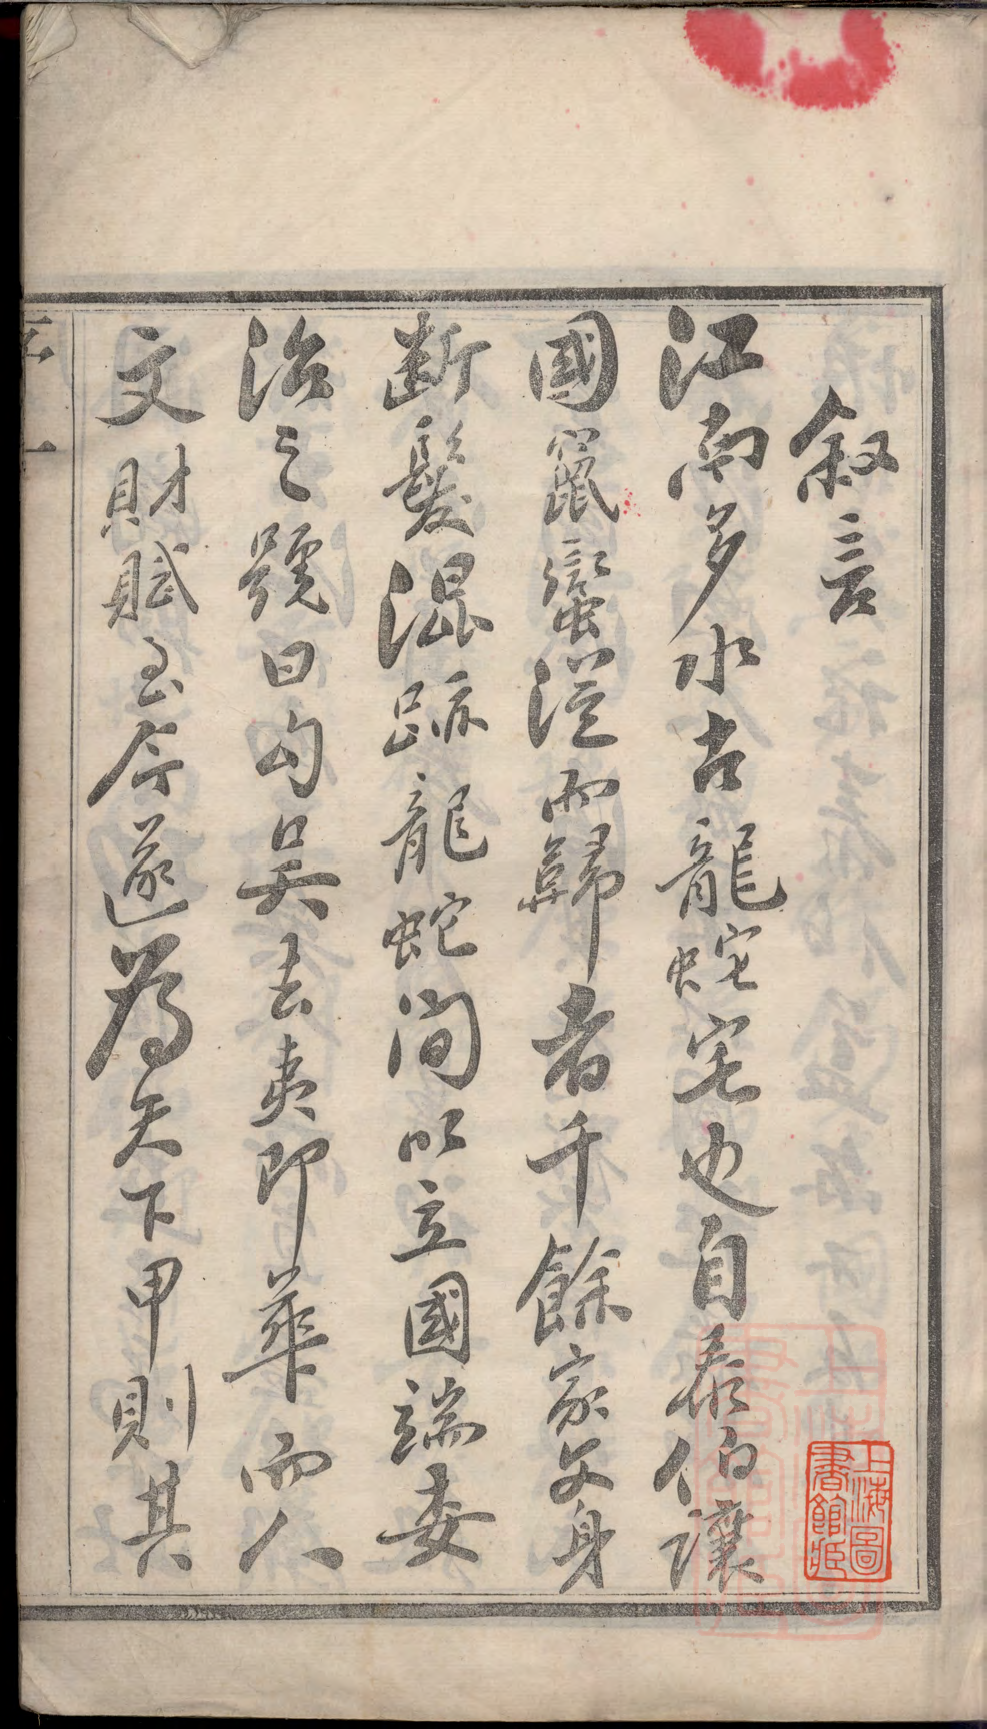 叙言
江南多水古龍蛇宅也自泰伯讓
國竄蠻從而歸者千餘家文身
斷髮混跡龍蛇間以立國端委
治之號曰勾吳去夷即華而人
文財賦至今遂為天下甲則其
序 一
上海圖
書館藏